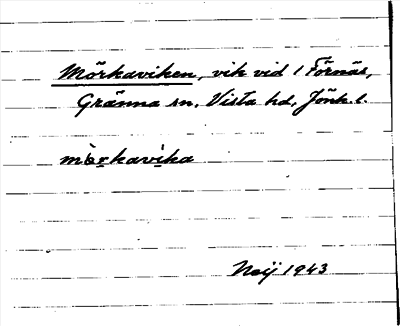 Mörkaviken, vik vid 1 Förnäs,
Gränna sn, Vista hd, Jönk. l.
mö̀rkavi̇ka
Neij 1943